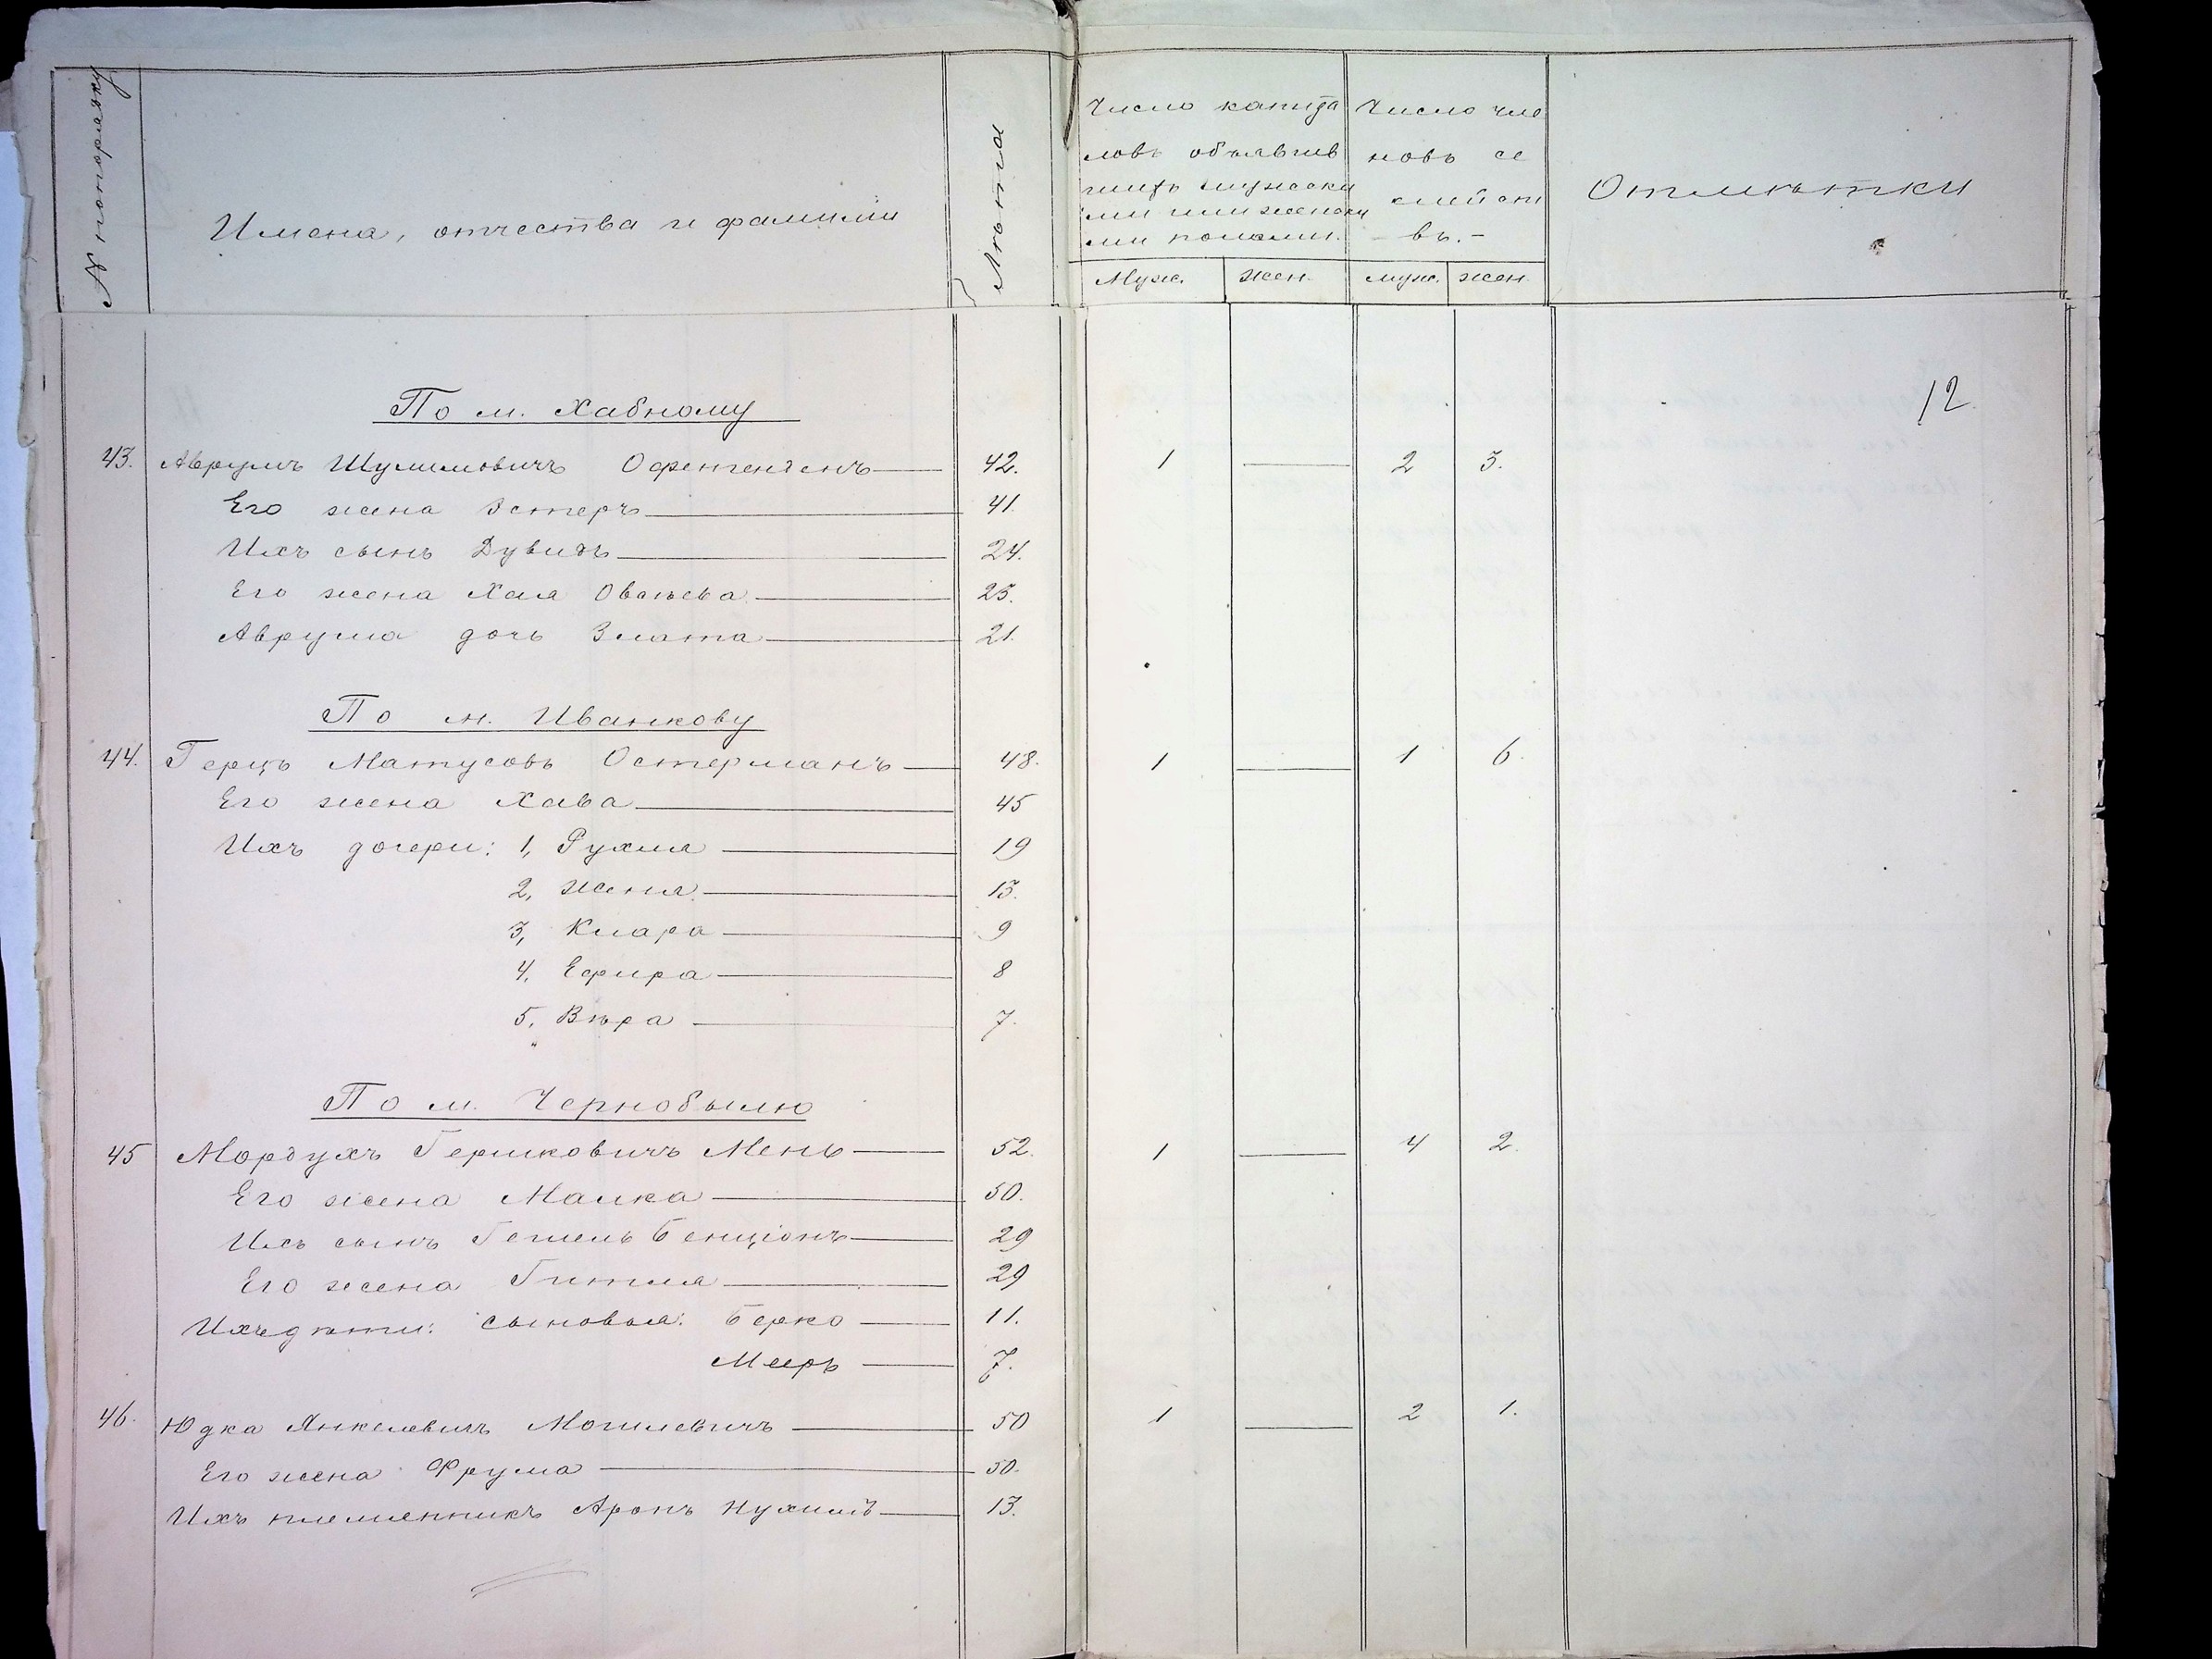 № по порядку
Имена, отчества и фамилии
Лѣта
Число капита
ловъ объявлен
ныхъ мужски
ми или женски
ми полами.
Муж. жен.
Число чле
новъ се
мейст
въ.-
муж. жен.
Отмѣтки
12
По м. Хабному
43. Аврумъ Шулимовичъ 42. 1 — 2 3.
Его жена Эстеръ 41.
Ихъ сынъ Дувидъ 24.
Его жена Хая 23.
Аврума дочь Злата 21.
По м. Иванкову
44. Герцъ Матусовъ Остерманъ 48. 1 — 1 6.
Его жена Хава 45
Ихъ дочери: 1, Рухля 19
2, Женя 13.
3, Клара 9
4. Ефира 8
5. Вѣра 7.
По м. Чернобылю
45 Мордухъ Гершковичъ Мень 52. 1 — 4 2.
Его жена Малка 50.
Ихъ сынъ Гешель Бенціонъ 29
Его жена Гитля 29
Ихъ дѣти: сыновья: Берко 11.
Мееръ 7.
46. Юдка Янкелевичъ Могилевичъ 50 1 — 2 1.
Его жена Фрума 50.
Ихъ племянникъ Аронъ Нухимъ 13.